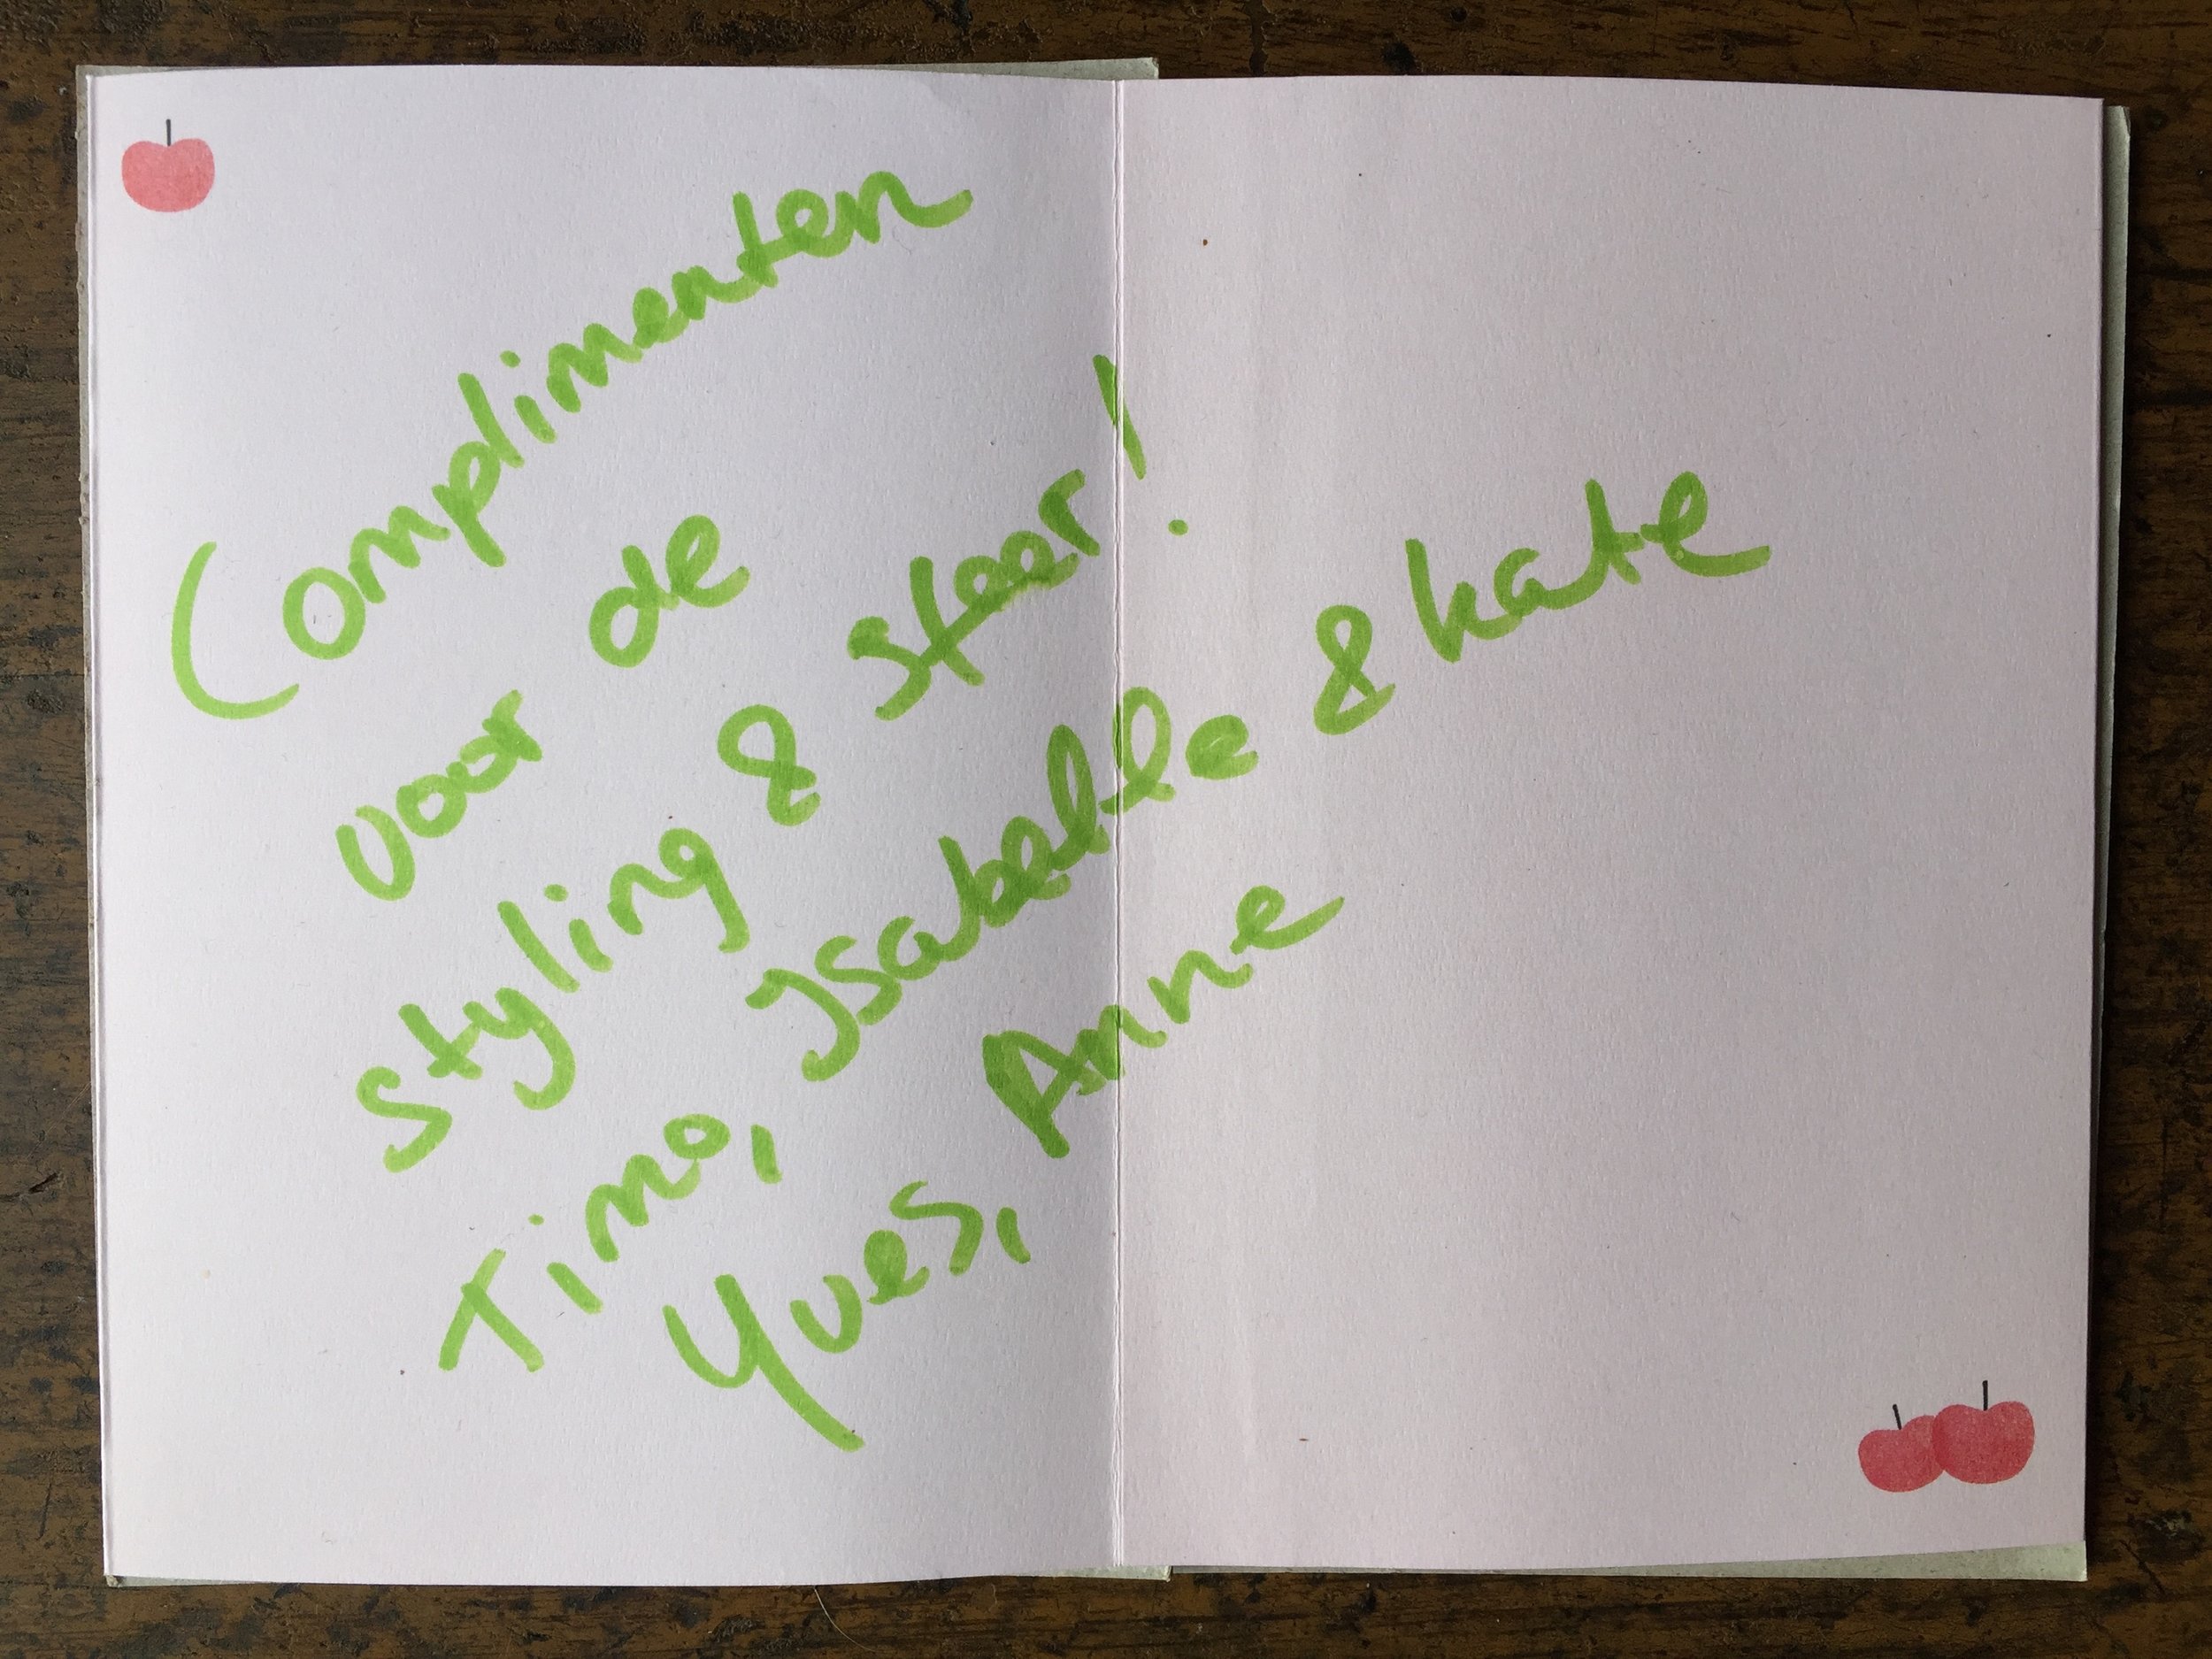 Complimenten
voor de
styling & sfeer!
Timo, Isabelle & kate
Yves, Anne